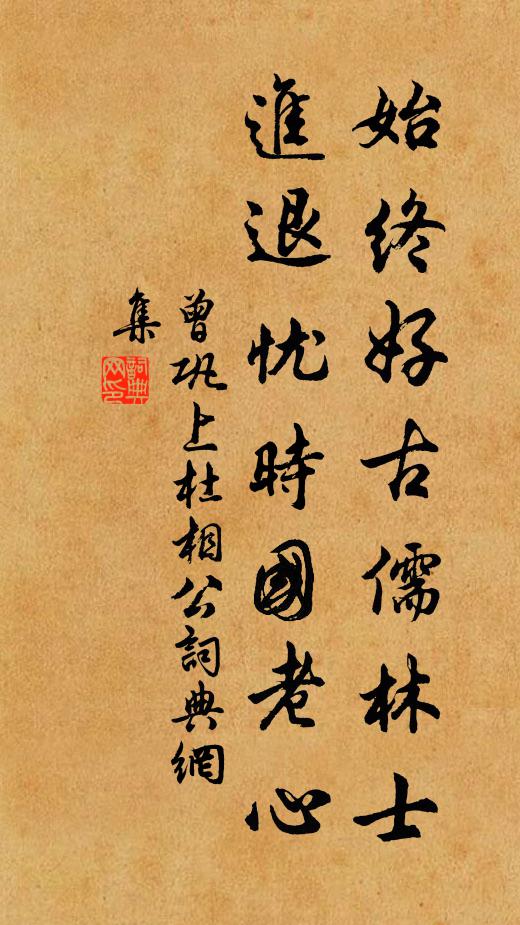 始终好古儒林士
進退忧時國老心
曾巩上杜相公詞典網
集
詞典
网印